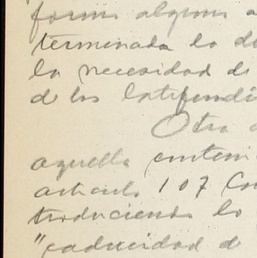 forma alguna a
terminada la de
la necesidad de
de los latifundi
Otra
aquella conten
articulo 107 Con
traduciendo lo
"caducidad de